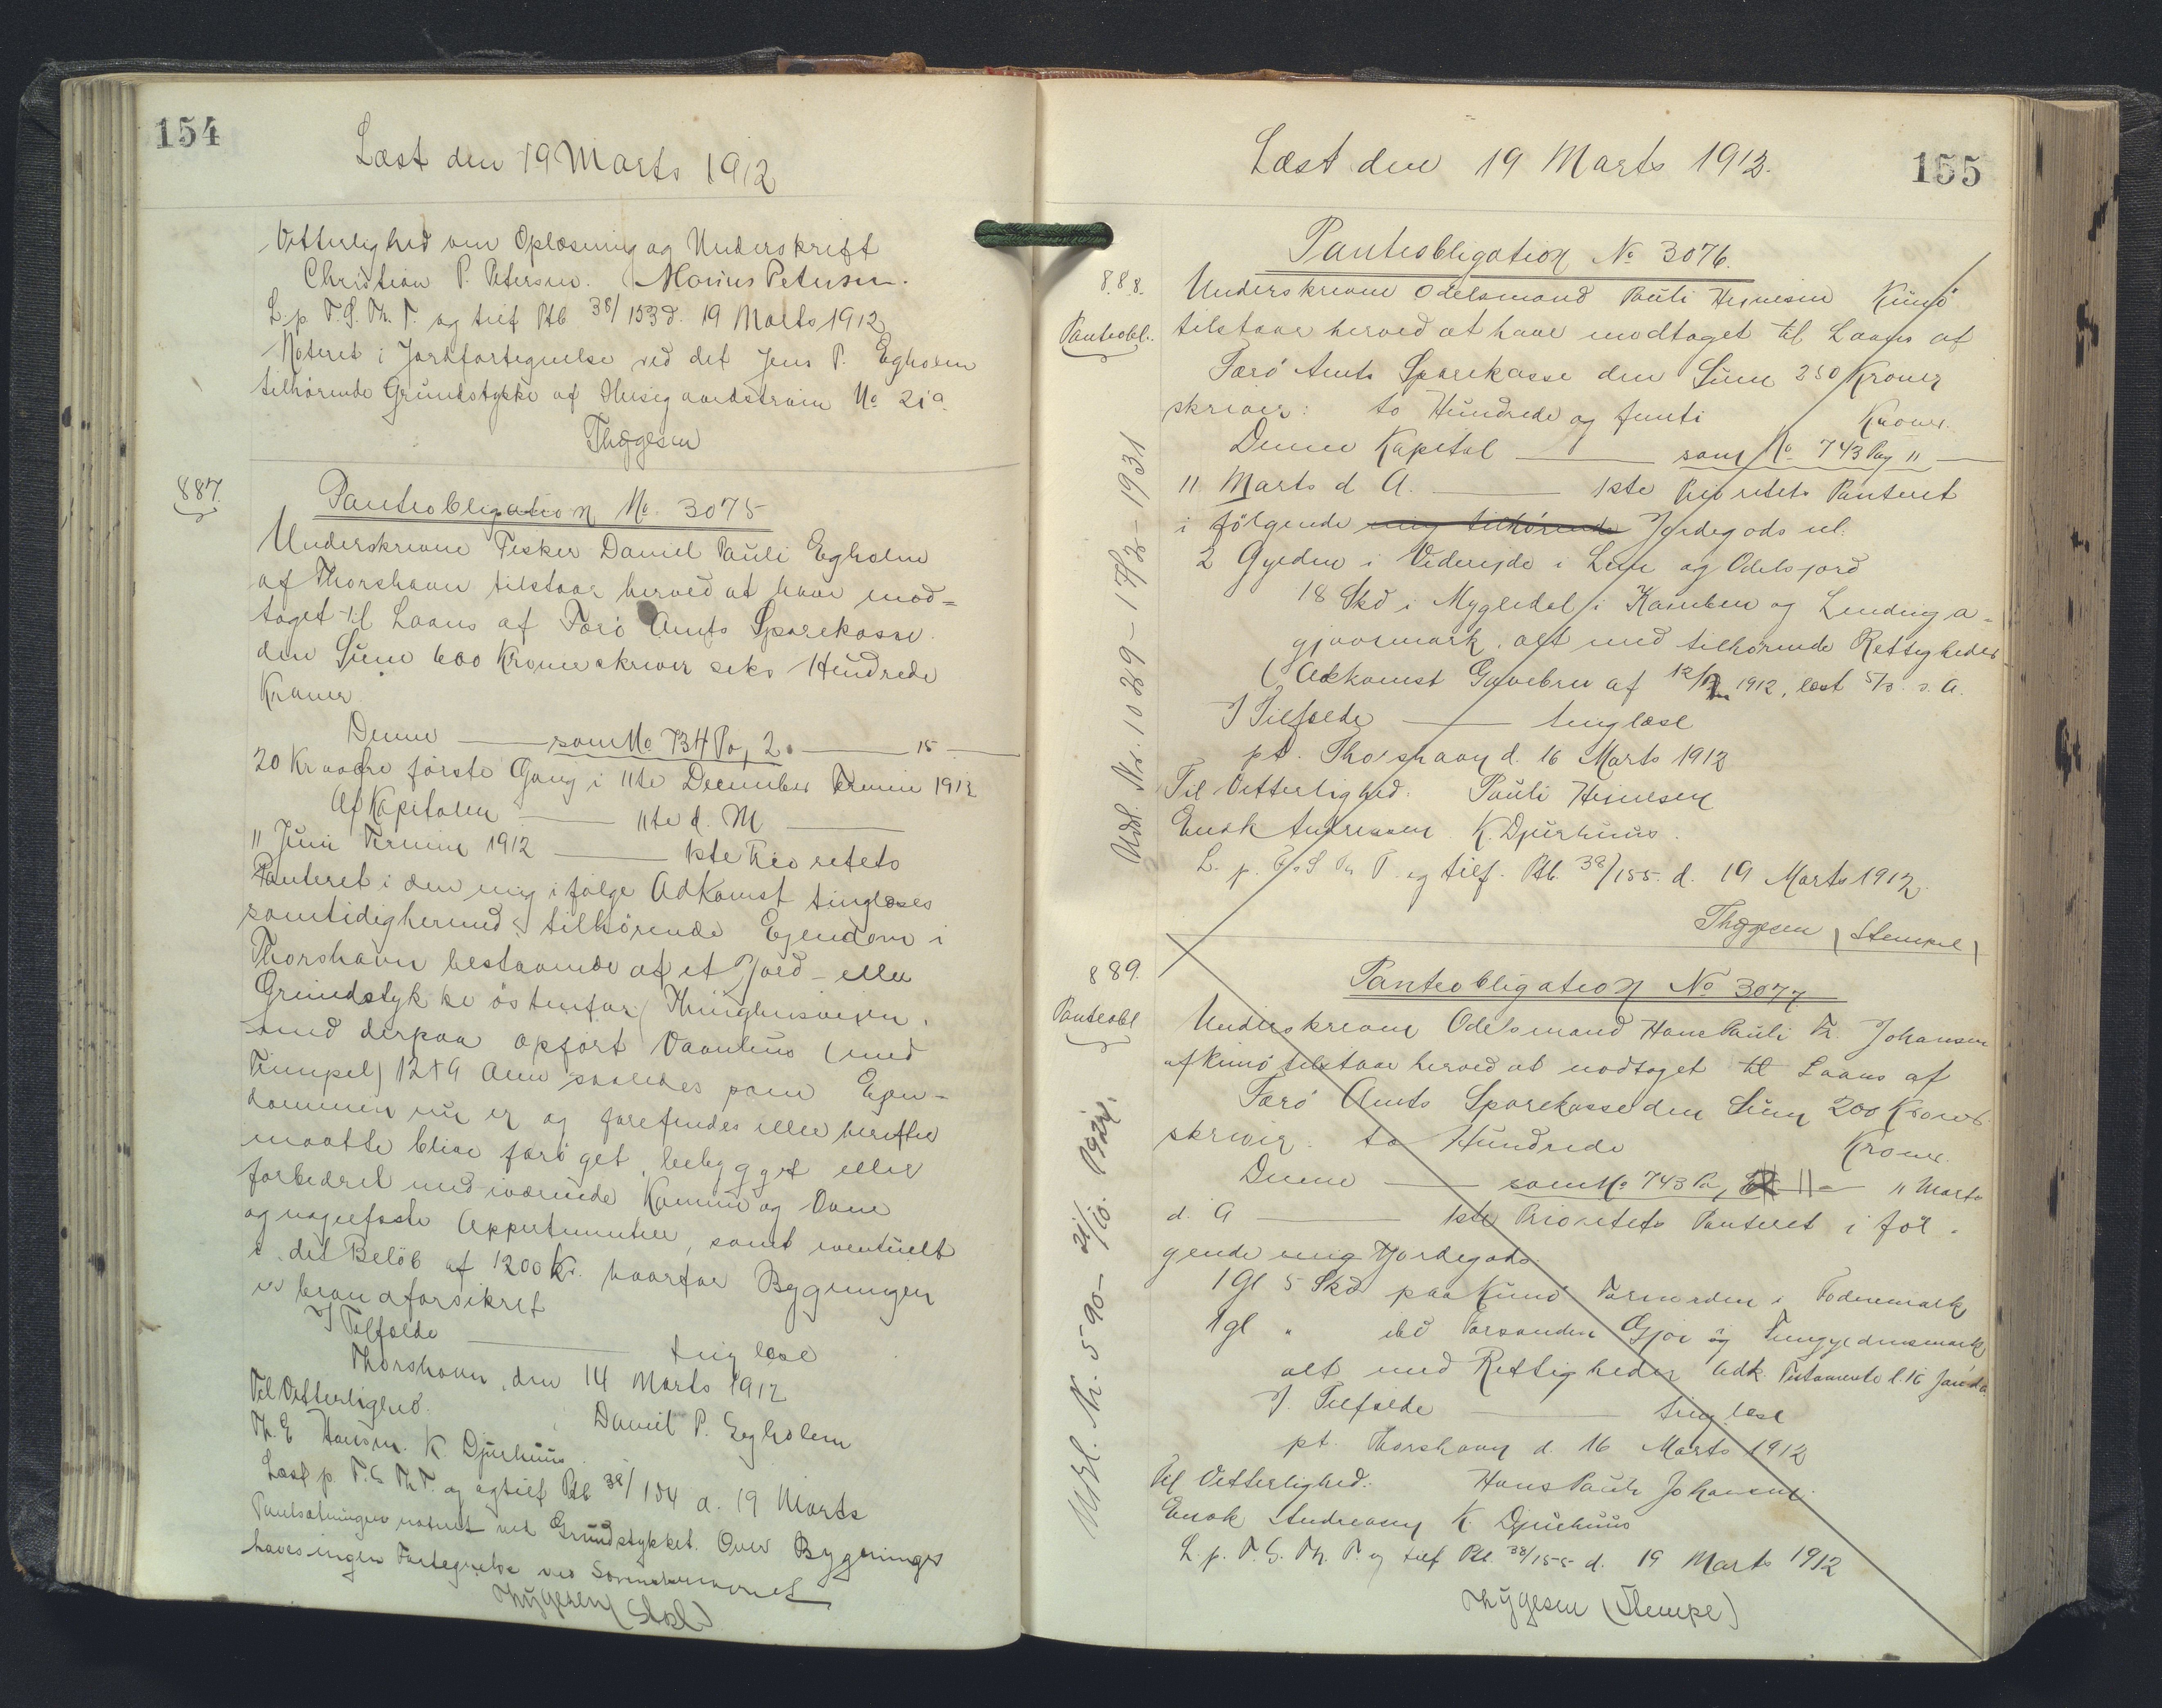 154
Læst den 19 Marts 1912
Vitterlighed om Oplæsning og Underskrift
Christian P. Petersen. Marius Petersen.
L. p. F. S. Th. T. og tilf Ptb 38/153 d. 19 Marts 1912
Noteret i Jordfortegnelse ved det Jens P. Egholm
tilhørende Grundstykke af Husigarðstrøin No 21a.
Thygesen
887.
Panteobligation No. 3075
Underskrevne Fisker Daniel Pauli Egholm
af Thorshavn tilstaar herved at have mod=
taget til Laans af Færö Amts Sparekasse
den Sum 600 Kroner skriver seks Hundrede
Kroner.
Denne — som No 734 Pag 2 — 15 —
20 Kr andre förste Gang i 11te December Termin 1912
Af Kapitalen — 11te d. M —
11 Juni Termin 1912 — 1ste Prioritets
Panteret i den mig ifölge Adkomst tinglæses
samtidig hermed tilhörende Ejendom i
Thorshavn bestaaende af et Jord- eller
Grundstykke östenfor Thinghusvejen,
med derpaa opfört Vaanhus (med
Timpel) 12 x 9 Alen saaledes som Ejen-
dommen nu er og forefindes eller herefter
maatte blive forö get, bebygget eller
forbedret med iværende Kamin og Ovne
og nagelfaste Appertinentier, samt eventuelt
i det Belöb af 1200 Kr. hvorfor Bygningen
er brandforsikret
I Tilfælde — ting læse
Thorshavn, den 14 Marts 1912
Til Vitterlighed. Daniel P. Egholm
Th. E Hansen. K Djurhuus.
Læst p. F. S Th T. og tilf Ptb 38/154 d. 19 Marts
Pantsætningen noteret ved Grundstykket. Over Bygninger
haves ingen Fortegnelse ved Sorenskriveriet
Thygesen (Stpl)
155
Læst den 19 Marts 1912.
Panteobligation No 3076.
888.
Panteobl.
Underskrevne Odelsmand Pauli Heinesen Kunö
tilstaar herved at have modtaget til Laans af
Færö Amts Sparekasse den Sum 250 Kroner
skriver: to Hundrede og femti Kroner.
Denne Kapital — som No 743 Pag 11 —
11 Marts d. A. — 1ste Prioritets Panteret
i fölgende mig tilhörende Jordegods nl.
2 Gylden i Videreide i Lem og Odelsjord
18 Skd i Mygledal i Kamben og Lendinga-
gjovsmark, alt med tilhörende Rettigheder
(Adkomst Gavebrev af 12/2 1912, læst 5/3 s. A.
I Tilfælde — tinglæse
pt. Thorshavn d. 16 Marts 1912
Til Vitterlighed. Pauli Heinesen
Enok Andreasen K. Djurhuus.
L. p. F. S Th T. og tilf. Ptb. 38/155. d. 19 Marts 1912.
Thygesen (Stempel)
Udsl. Nr. 1029 - 17/3 - 1931
889.
Panteobl
Panteobligation No 3077
Underskrevne Odelsmand Hans Pauli Fr. Johansen
af Kunö tilstaar herved at modtaget til Laans af
Færö Amts Sparekasse den Sum 200 Kroner
skriver to Hundrede Kroner.
Denne — som No 743 Pag 11 — 11 Marts
d. A — 1ste Prioritets Panteret i föl-
gende mig Jordegods
1 Gl 5 Skd paa Kunö i Fodenmark
1 gl " ibd og
alt med Rettigheder Adk. Testamente l. 16 Jan. d.a.
I. Tilfælde — tinglæse
pt. Thorshavn d. 16 Marts 1912
Til Vitterlighed. Hans Pauli Johansen.
Enok Andreasen K. Djurhuus
L. p. F. S. Th. T. og tilf Ptb. 38/155 d. 19 Marts 1912
Thygesen (Stempel)
Udsl. Nr. 590 - 21/10. 1924.